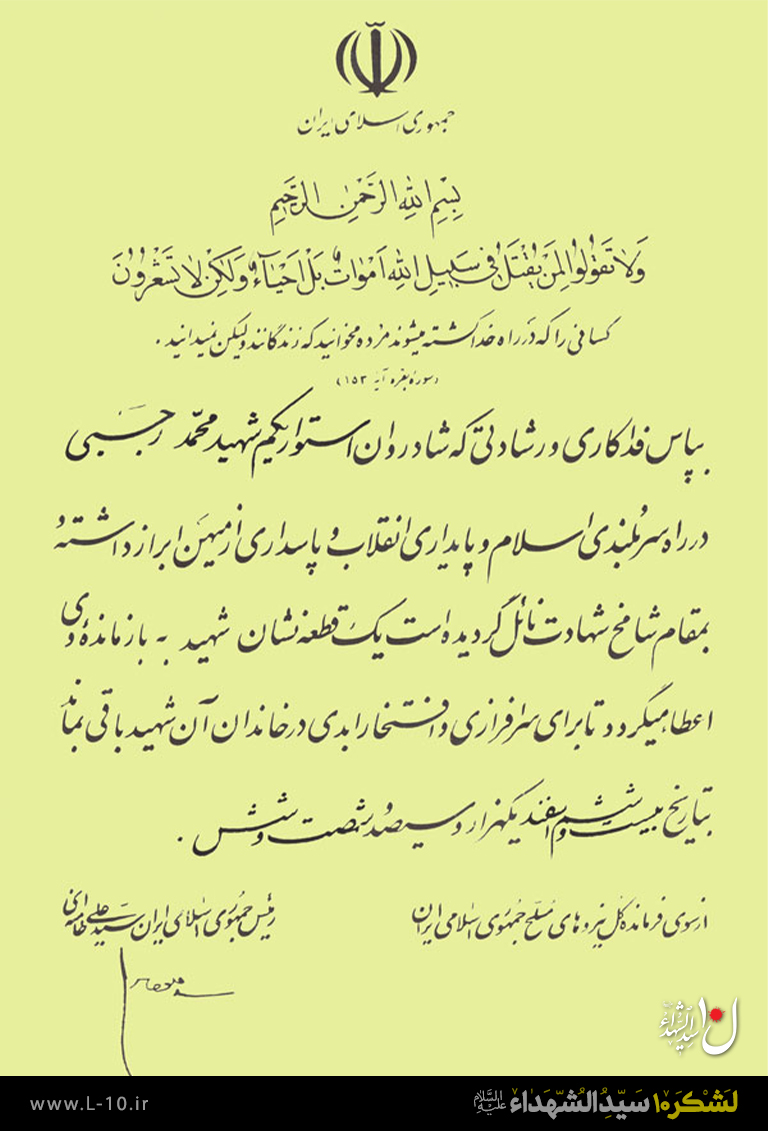 جمهوری اسلامی ایران
بِسْمِ اللهِ الرَّحْمنِ الرَّحیمِ
وَلا تَقُولُوا لِمَنْ یُقْتَلُ فی سَبیلِ اللهِ اَمْواتٌ بَلْ اَحْیآءٌ وَلکِنْ لا تَشْعُرُونَ
کسانی را که در راه خدا کشته میشوند مرده مخوانید که زندگانند ولیکن نمیدانید.
(سوره بقره آیه ۱۵۳)
بپاس فداکاری و رشادتی که شادروان استوار یکم شهید محمّد رجبی
در راه سربلندی اسلام و پایداری انقلاب و پاسداری از میهن ابراز داشته و
بمقام شامخ شهادت نائل گردیده است یک قطعه نشان شهید به بازمانده وی
اعطاء میگردد تا برای سرافرازی و افتخار ابدی در خاندان آن شهید باقی بماند
بتاریخ بیست و ششم اسفند یکهزار و سیصد و شصت و شش.
از سوی فرمانده کل نیروهای مسلح جمهوری اسلامی ایران
رئیس جمهوری اسلامی ایران سید علی خامنه ای
ل۱۰ سیدالشهداء
لَشْکَر۱۰ سَیِّدُالشُّهَداء عَلَیْهِ السَّلام
www.L-10.ir